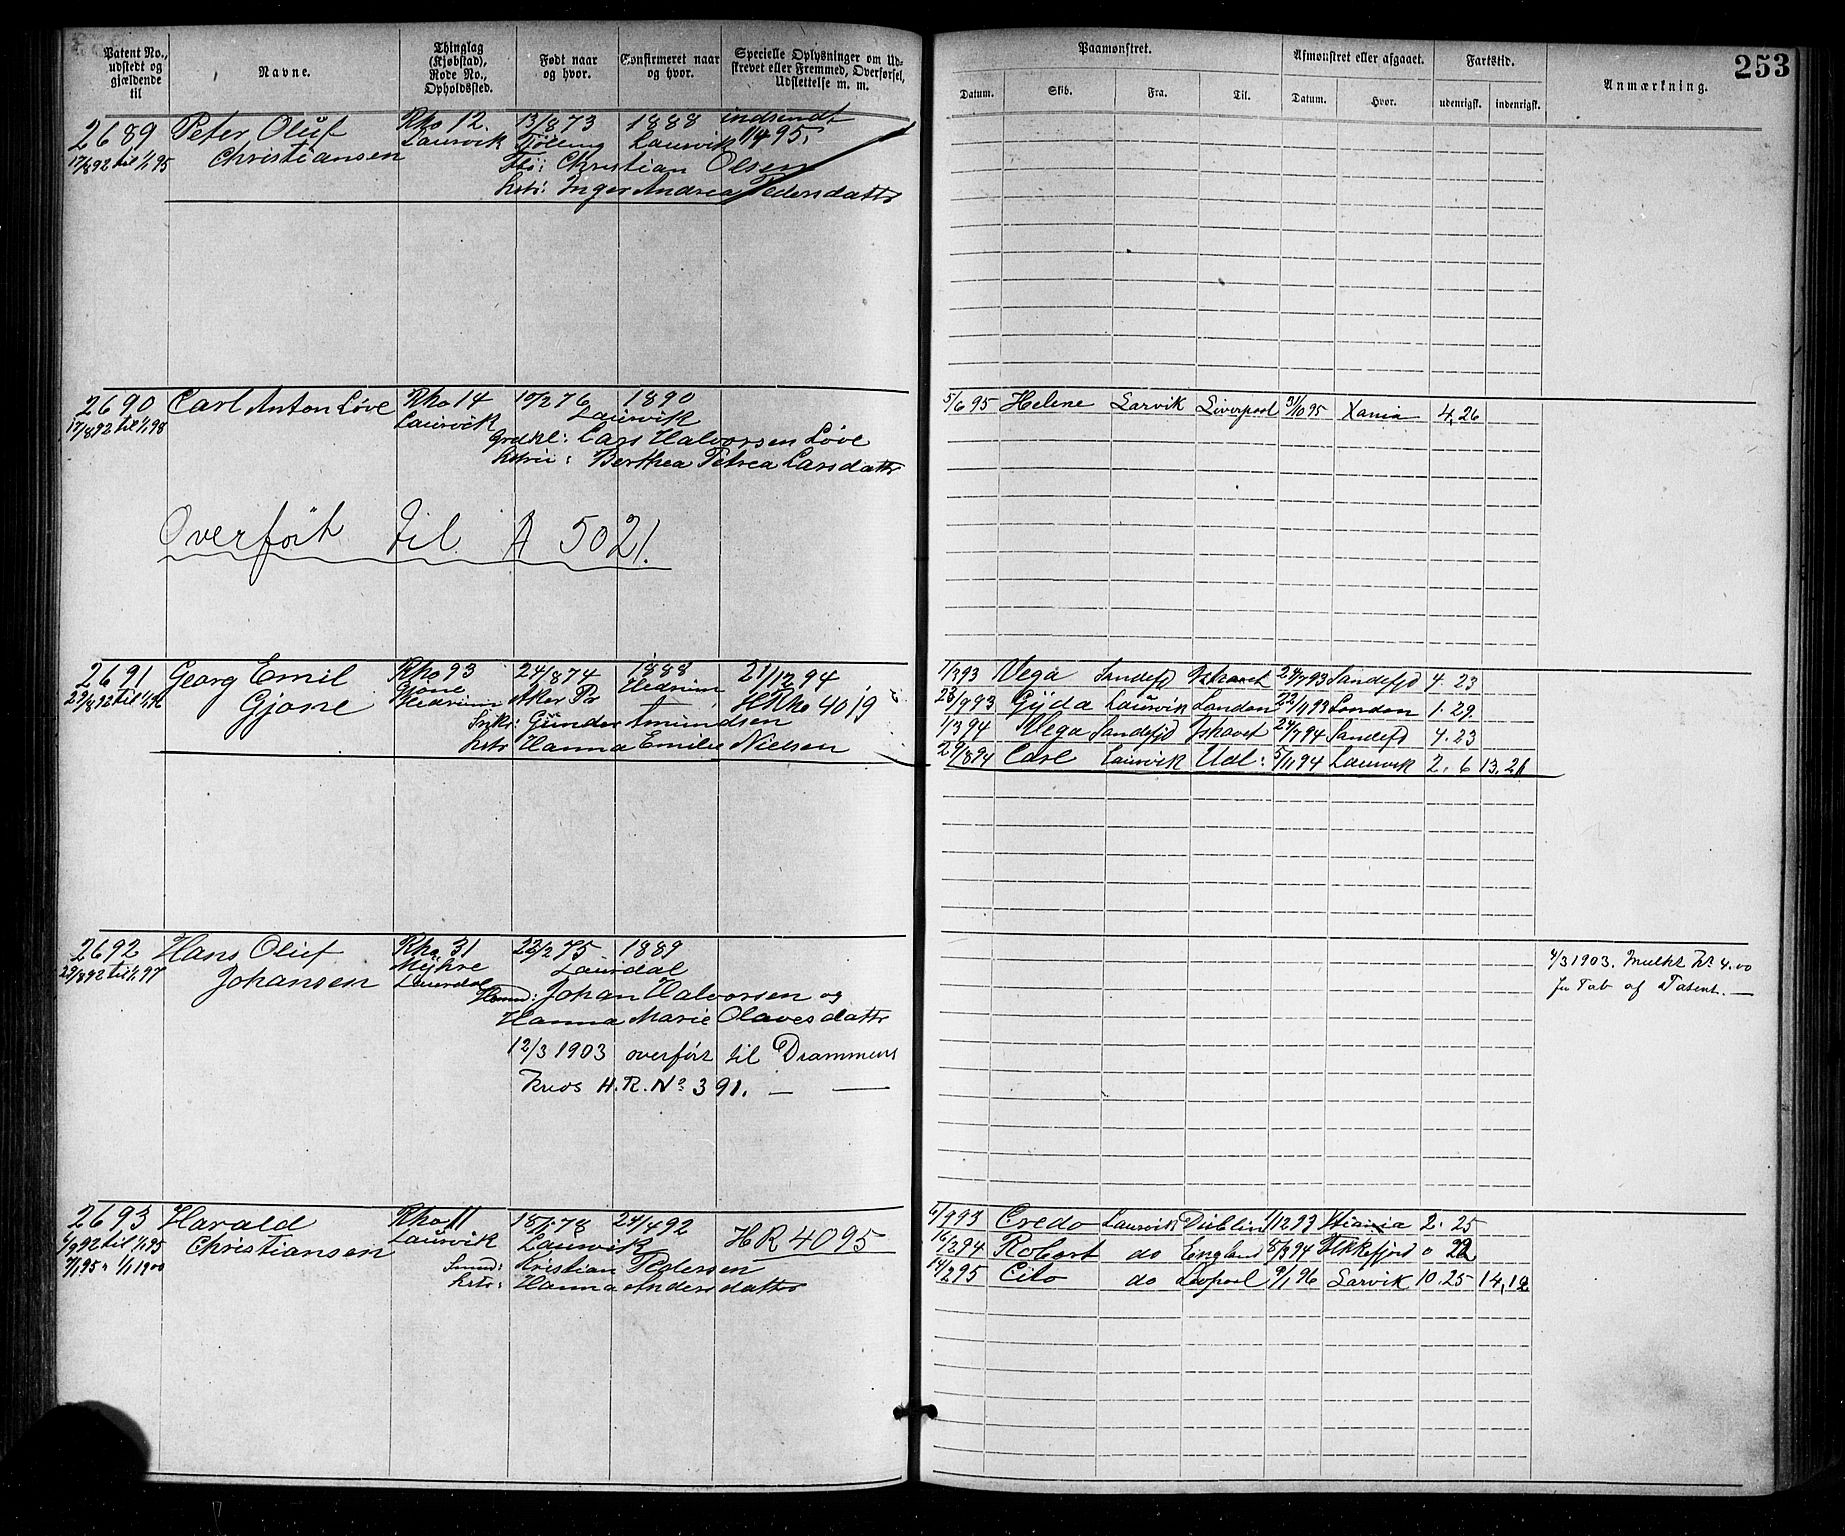 253
Patent No., udstedt og gjældende til
Navne.
Thinglag (Kjøbstad), Rode No., Opholdssted.
Født naar og hvor.
Confirmeret naar og hvor.
Specielle Oplysninger om Udskrevet eller Fremmed, Overførsel, Udslettelse m. m.
Paamønstret.
Datum. Skib. Fra. Til.
Afmønstret eller afgaaet.
Datum. Hvor.
Fartstid.
udenrigsk. indenrigsk.
Anmærkning.
2689 Peter Oluf Rno 12. 13/8 73 1888 indsendt
17/8 92 til 1/1 95 Christiansen Laurvik Tjølling Laurvik 1/4 95.
Christian Olsen
hstr: Inger Andrea Pedersdattr
2690 Carl Anton Løve Rno 14 10/2 76 1890
17/8 92 til 1/1 98 Laurvik Laurvik
Lars Halvorsen Løve
Berthea Petrea Larsdattr
Overført til A 5021.
5/6 95 Helene Larvik Liverpool 31/10 95 Xania 4,26
2691 Georg Emil Rno 93 24/8 74 1888 21/12 94
Gjone Gjone Hedrum Aker Pr Hedrum HRno 4019
Gunder Amundsen
hstr Hanna Emilie Nielsen
1/3 93 Vega Sandefjd Ishavet 24/7 93 Sandefjd 4.23
23/9 93 Gyda Laurvik London 22/11 93 London 1.29.
1/3 94 Vega Sandefjd Ishavet 24/7 94 Sandefjd 4.23
29/8 94 Carl Laurvik Udl: 5/11 94 Laurvik 2. 6 13.21
2692 Hans Oluf Rno 31 22/2 75 1889
29/8 92 til 1/1 97 Johansen Myhre Laurdal Laurdal
Johan Halvorsen og
Hanna Marie Olavesdattr
12/3 1903 overført til Drammens
Kreds H.R. No 391.
4/3 1903. Mulkt Kr 4.00
for Tab af Patent.
2693 Harald Rno 11 18/1 78 24/4 92 HR 4095
6/9 92 til 1/1 95 Christiansen Laurvik Laurvik
7/1 95 " 1/1 1900
Smed: Kristian Pedersen
hstr: Hanna Andersdattr
6/9 93 Credo Laurvik Dublin 1/12 93 Xtiania 2. 25
16/2 94 Robert do England 8/3 94 Flekkefjord 0 22
14/2 95 Cito do Lvpool 9/1 96 Larvik 10.25 14,12